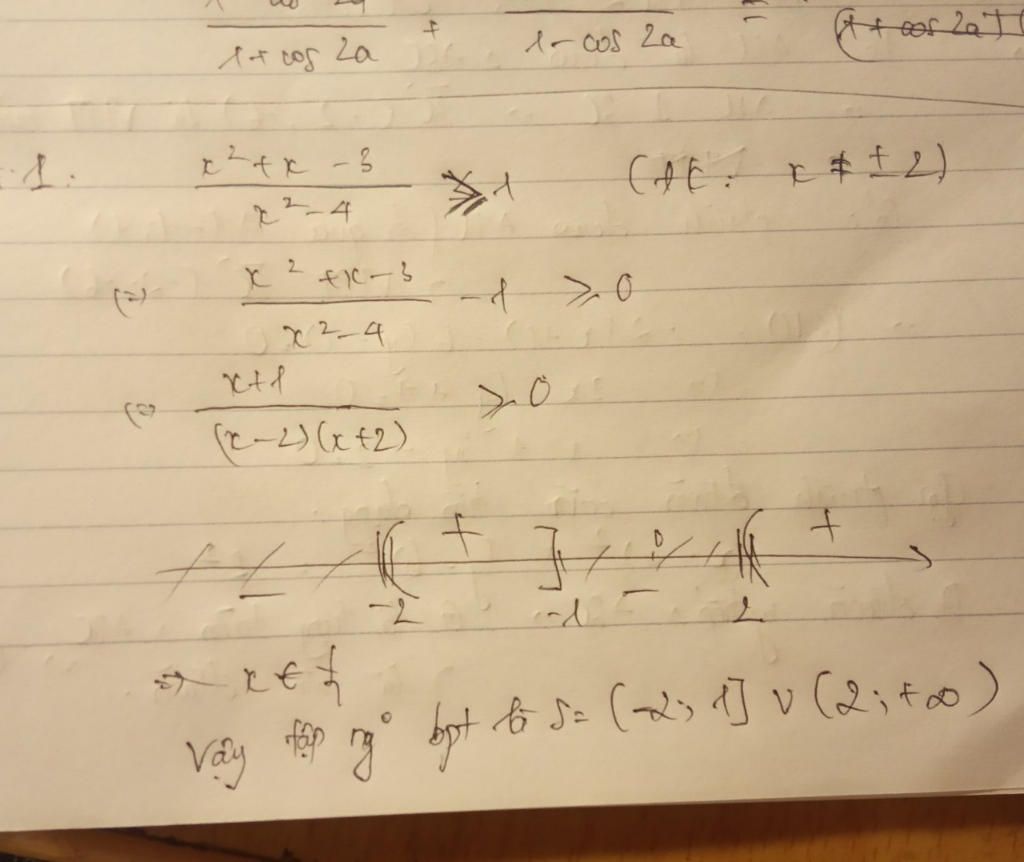 1 + cos 2a + 1 - cos 2a = (1 + cos 2a)(
1. (x² + x - 3)/(x² - 4) ≥ 1 (ĐK: x ≠ ± 2)
(=) (x² + x - 3)/(x² - 4) - 1 ≥ 0
(=) (x+1)/((x-2)(x+2)) ≥ 0
- ( + ] 0 - ( +
-2 -1 2
=> x ∈
Vậy tập ng° bpt là S = (-2; 1] ∪ (2; +∞)